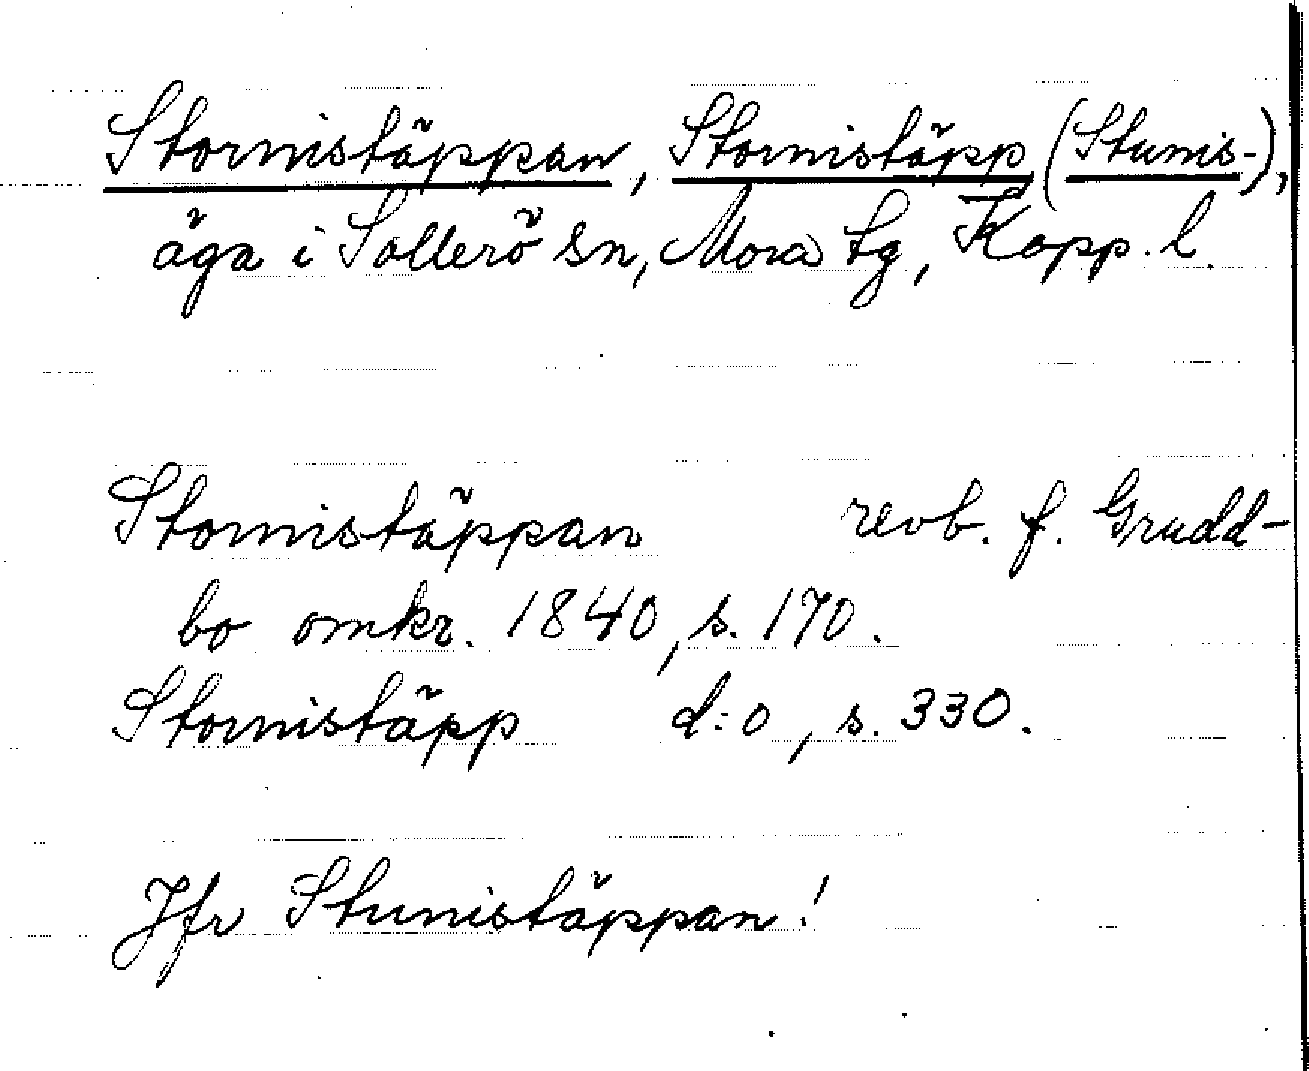 Stornistäppan, Stornistäpp (Stunis-),
äga i Sollerö sn, Mora tg, Kopp. l.
Stornistäppan revb. f. Grudd-
bo omkr. 1840, s. 170.
Stornistäpp d:o, s. 330.
Jfr Stunistäppan!